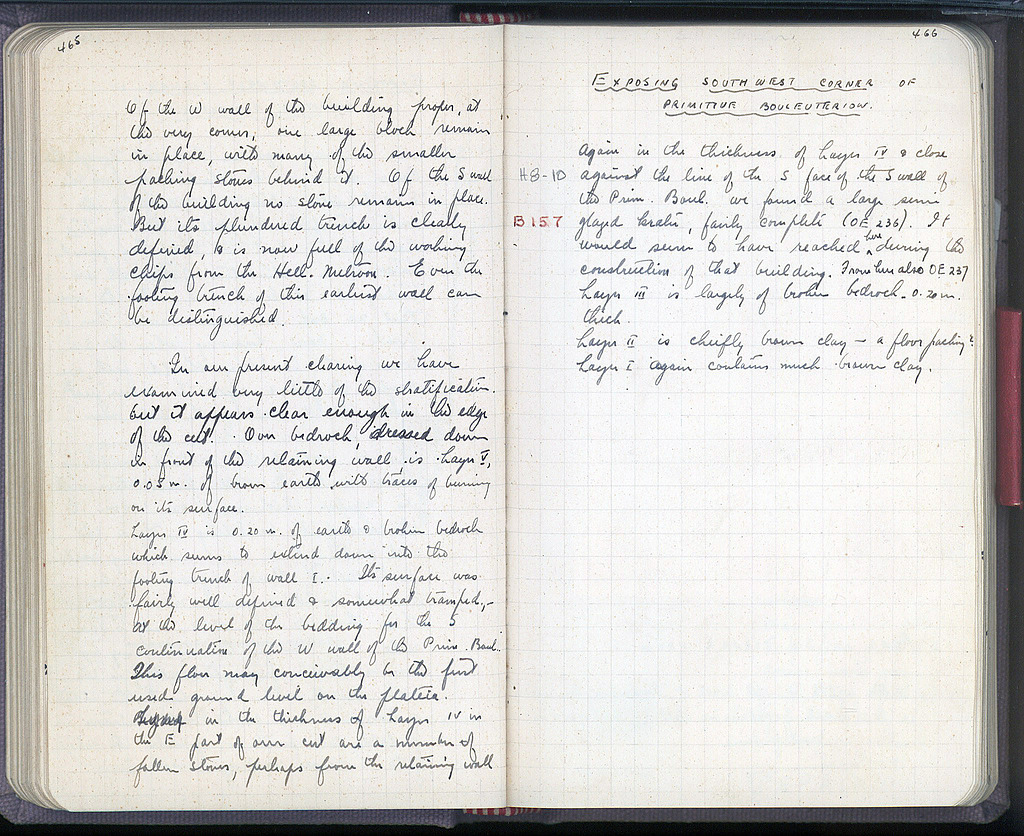 465
Of the W wall of the building proper, at
the very corner, one large block remains
in place, with many of the smaller
packing stones behind it. Of the S wall
of the building no stone remains in place.
But its plundered trench is clearly
defined, & is now full of the working
chips from the Hell. Metroon. Even the
footing trench of this earliest wall can
be distinguished.
In our present clearing we have
examined very little of the stratification.
but it appears clear enough in the edge
of the cut. Over bedrock, dressed down
in front of the retaining wall, is Layer V,
0.05 m. of brown earth with traces of burning
on its surface.
Layer IV is 0.20 m. of earth & broken bedrock
which seems to extend down into the
footing trench of wall I. Its surface was
fairly well defined & somewhat tramped,-
at the level of the bedding for the S
continuation of the W wall of the Prim. Boul.
This floor may conceivably be the first
used ground level on the plateia.
in the thickness of Layer IV in
the E part of our cut are a number of
fallen stones, perhaps from the retaining wall
466
EXPOSING SOUTHWEST CORNER OF
PRIMITIVE BOULEUTERION.
Again in the thickness of Layer IV & close
H8-10 against the line of the S face of the S wall of
the Prim. Boul. we found a large semi
B157 glazed krater, fairly complete (OE 236). It
would seem to have reached here during the
construction of that building. From here also OE 237
Layer III is largely of broken bedrock - 0.20 m.
thick.
Layer II is chiefly brown clay – a floor packing?
Layer I again contains much brown clay.